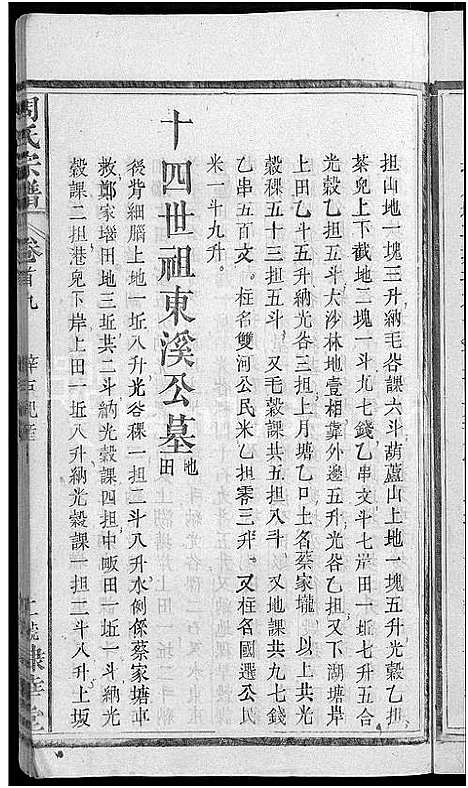 担山地一塊三升納毛谷課六斗葫蘆山上地一塊五升光穀乙担
茶兜上下截地二塊一斗九七錢乙串文斗七岸田一坵七升五合
光穀乙担五斗大沙林地壹相靠外邊五升光谷乙担又下湖塘岸
上田乙斗五升納光谷三担上月塘乙口土名蔡家壠 以上共光
穀稞五十三担五斗 又毛穀課共五担八斗 又地課共九七錢
乙串五百文 柱名雙河公民米乙担零三升 又柱名國選公民
米一斗九升
十四世祖東溪公墓地田
後背細腦上地一坵八升光谷稞一担二斗八升水側係蔡家塘中
救鄭家墩田地三坵共二斗納光穀課四担中畈田一坵一斗納光
穀課二担港兜下岸上田一坵八升納光穀課一担二斗八升上坂
周氏宗譜 卷首九